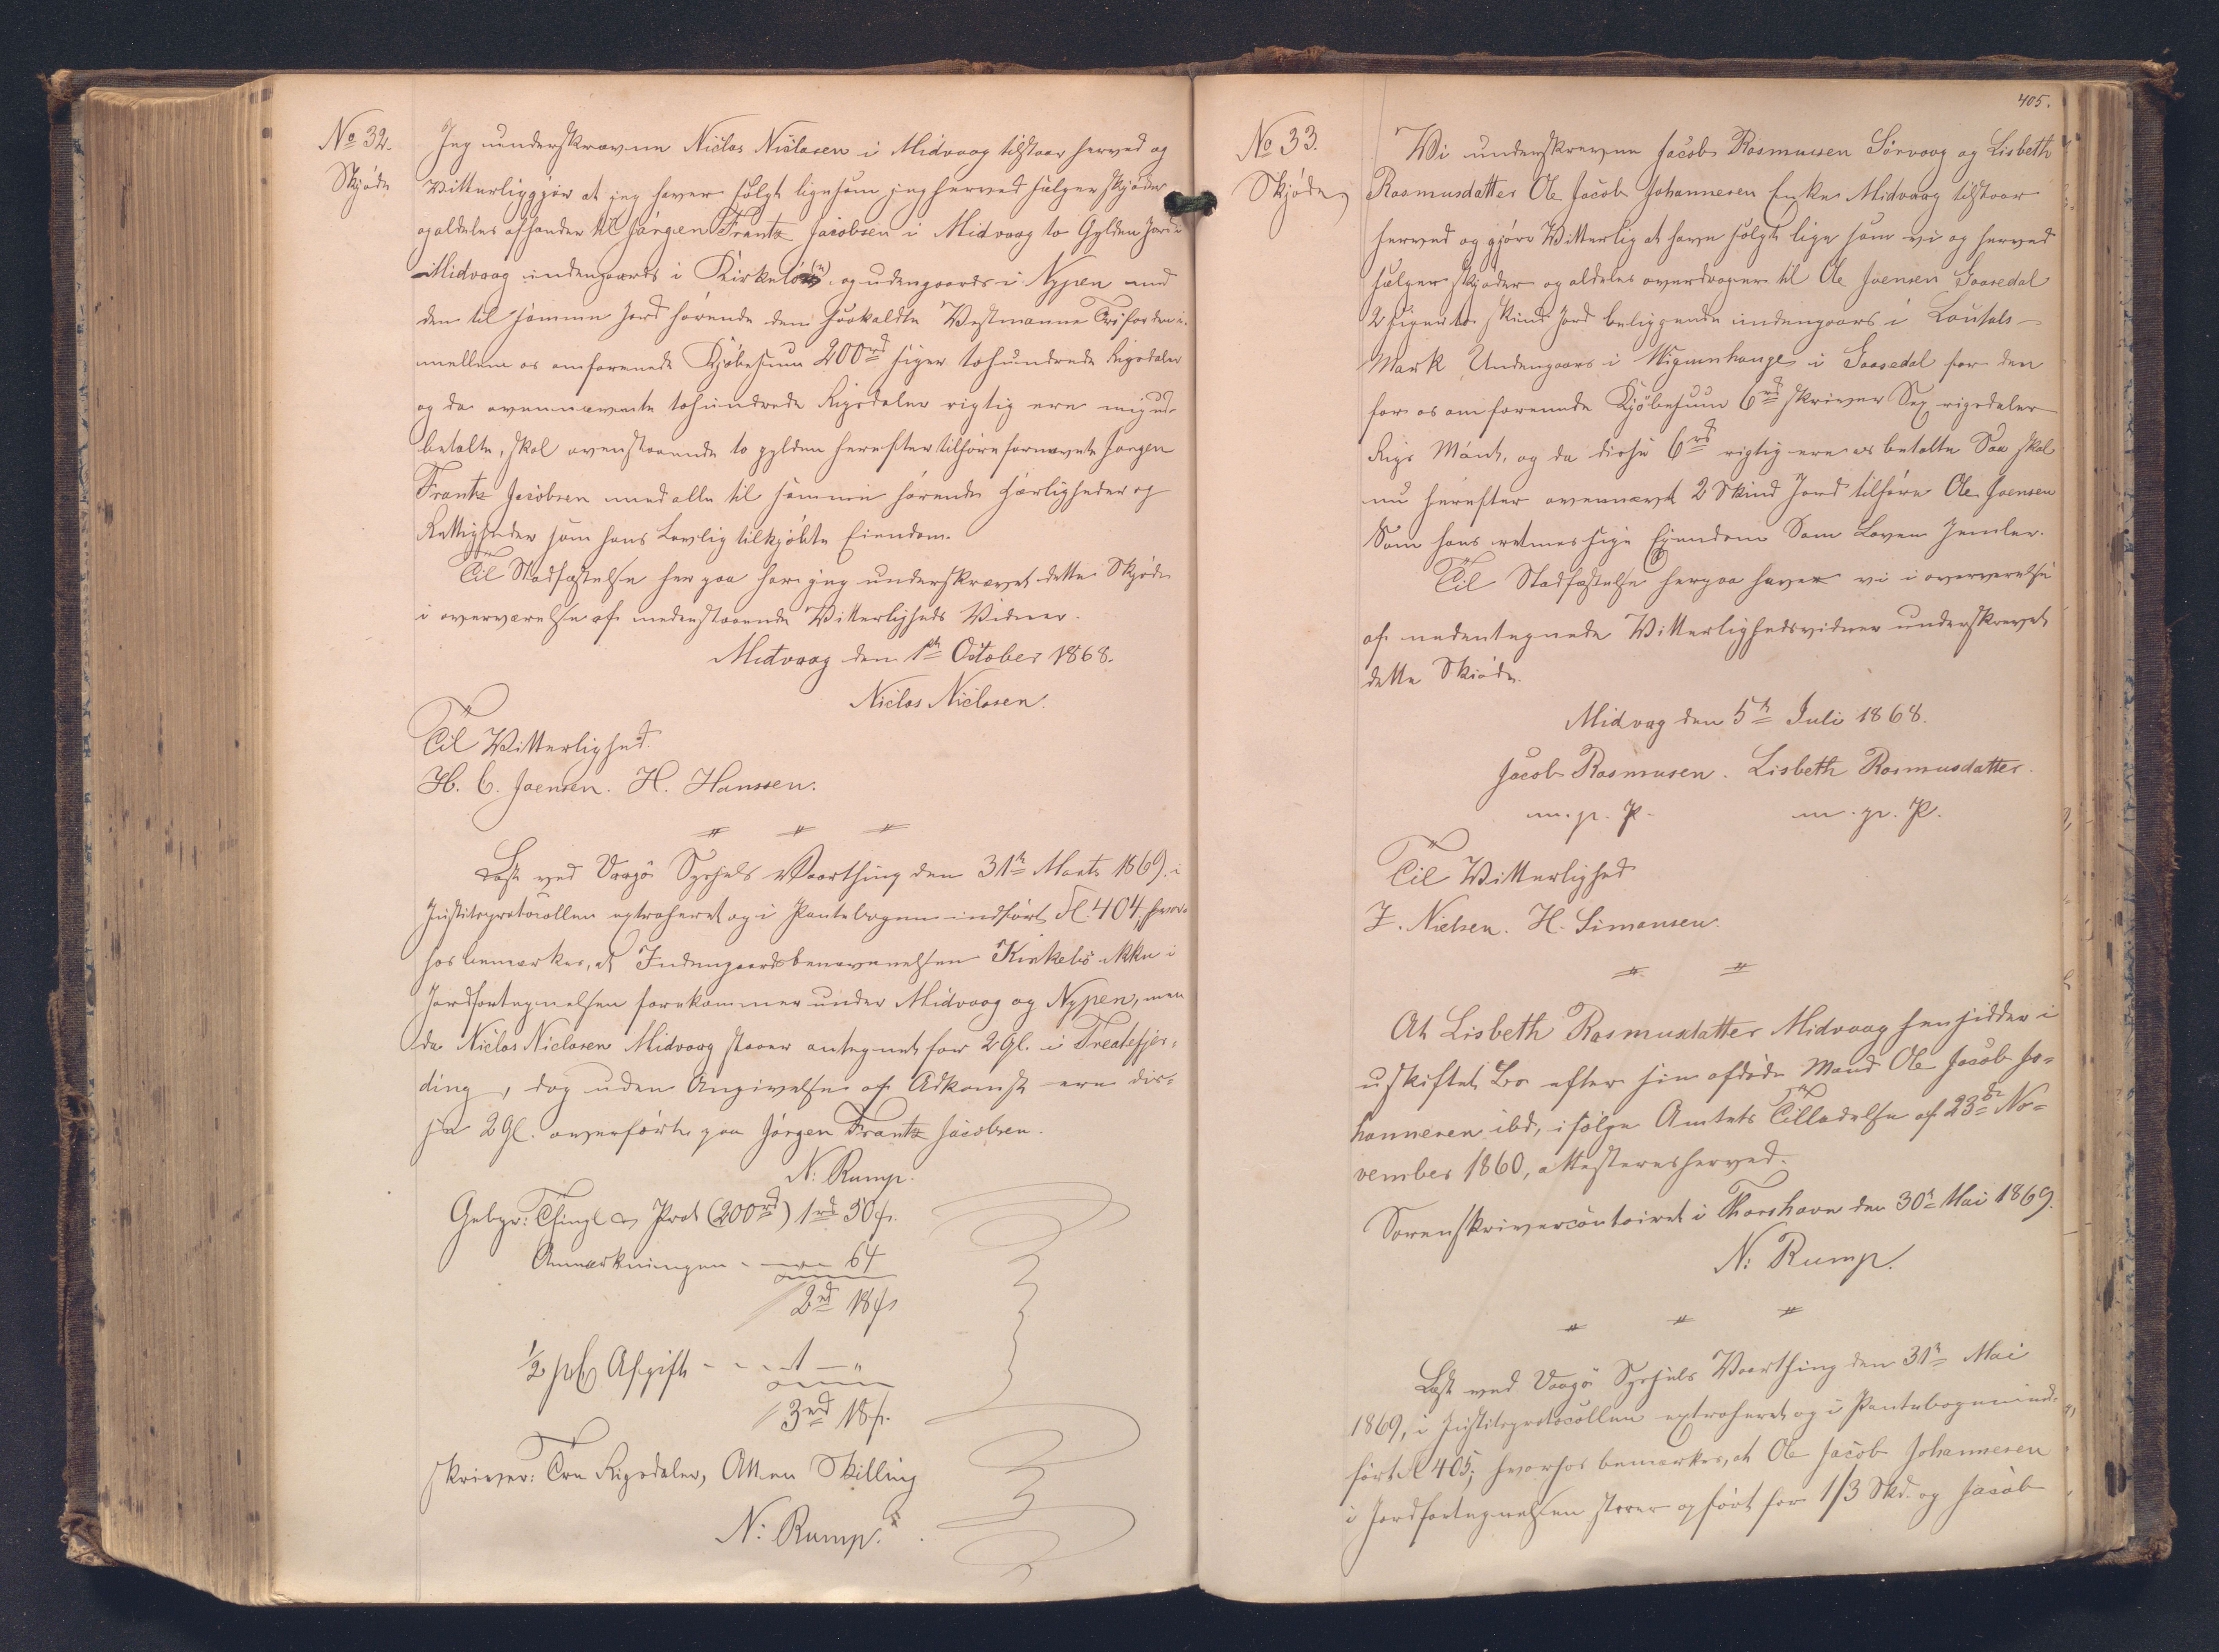 No 32.
Skjøde
Jeg uunderskrevne Niclas Niclasen i Midvaag tilstaar herved og
Vitterliggjør at jeg haver solgt ligesom jeg herved sælger skjøder
og aldeles afhænder til Jørgen Frantz Jacobsen i Midvaag to Gylden Jord i
Midvaag indengaards i og udengaards i Nypen med
den til samme Jord hørende den saakaldte Vestmanna for den i
mellem os omforenede Kjøbesum 200rd siger tohundrede Rigsdaler
og da ovennævnte tohundrede Rigsdaler rigtig ere mig ud-
betalte, skal ovenstaaende to gylden herefter tilhøre fornævnte Jørgen
Frantz Jacobsen med alle til samme hørende Herligheder og
Rettigheder som hans Lovlig tilkjøbte Eiendom.
Til Stadfæstelse her paa har jeg underskrevet dette Skjøde
i overværelse af nedenstaaende Vitterligheds Vidner.
Midvaag den 1st October 1868.
Niclas Niclasen.
Til Vitterlighed.
H. C. Joensen. H. Hanssen.
Læst ved Vaagø Syssels Vaarthing den 31te Marts 1869. i
Justitsprotocollen extraheret og i Pantebogen indført Fol. 404, hvor-
hos bemærkes, at Indengaardsbenævnelsen Kirkelø ikke i
Jordfortegnelsen forekommer under Midvaag og Nypen, men
da Niclas Niclasen Midvaag staaer antegnet for 2 Gl. i Treatefjer-
ding, dog uden Angivelse af Adkomst ere dis-
se 2 Gl. overførte paa Jørgen Frantz Jacobsen.
N: Rump.
Gebyr: Thingl. og Prot (200rd) 1rd 50s.
Anmærkningen - 64
2rd 18s
1/2 pC Afgift - - 1 — "
3rd 18s.
skriver: Tre Rigsdaler, Atten Skilling
N: Rump.
405.
No 33.
Skjøde
Wi underskrevne Jacob Rasmussen Sörvaag og Lisbeth
Rasmusdatter Ole Jacob Johannesen Enke Midvaag tilstaar
herved og gjøre Witterlig at have solgt lige som vi og herved
sælger skjøder og aldeles overdrager til Ole Joensen Gaasedal
2 siger to Skind Jord beliggende indengaars i
Mark Undengaars i i Gaasedal for den
for os omforenede Kjøbesum 6rd skriver Sex rigsdaler
Rigs Mönt, og da disse 6rd rigtig ere os betalte Saa skal
nu herefter ovennævnt 2 Skind Jord tilhøre Ole Joensen
Som hans retmessige Ejendom Som Loven
Til Stadfæstelse herpaa haver vi i overværelse
af nedentegnede Witterlighedsvidner underskrevet
dette Skiøde.
Midvag den 5te Juli 1868.
Jacob Rasmusen. Lisbeth Rasmusdatter.
m. p. P. m. p. P.
Til Witterlighed
Z. Nielsen. H. Simonsen.
At Lisbeth Rasmusdatter Midvaag hensidder i
uskiftet Bo efter sin afdøde Mand Ole Jacob Jo-
hannesen ibd, ifølge Amtets Tilladelse af 23de No-
vember 1860, attesteres herved.
Sorenskrivercontoiret i Thorshavn den 30te Mai 1869.
N: Rump.
Læst ved Vaagø Syssels Vaarthing den 31te Mai
1869, i Justitsprotocollen extraheret og i Pantebogen ind-
ført Fol 405; hvorhos bemærkes, at Ole Jacob Johannesen
i Jordfortegnelsen staaer opført for 1/3 Skd. og Jacob